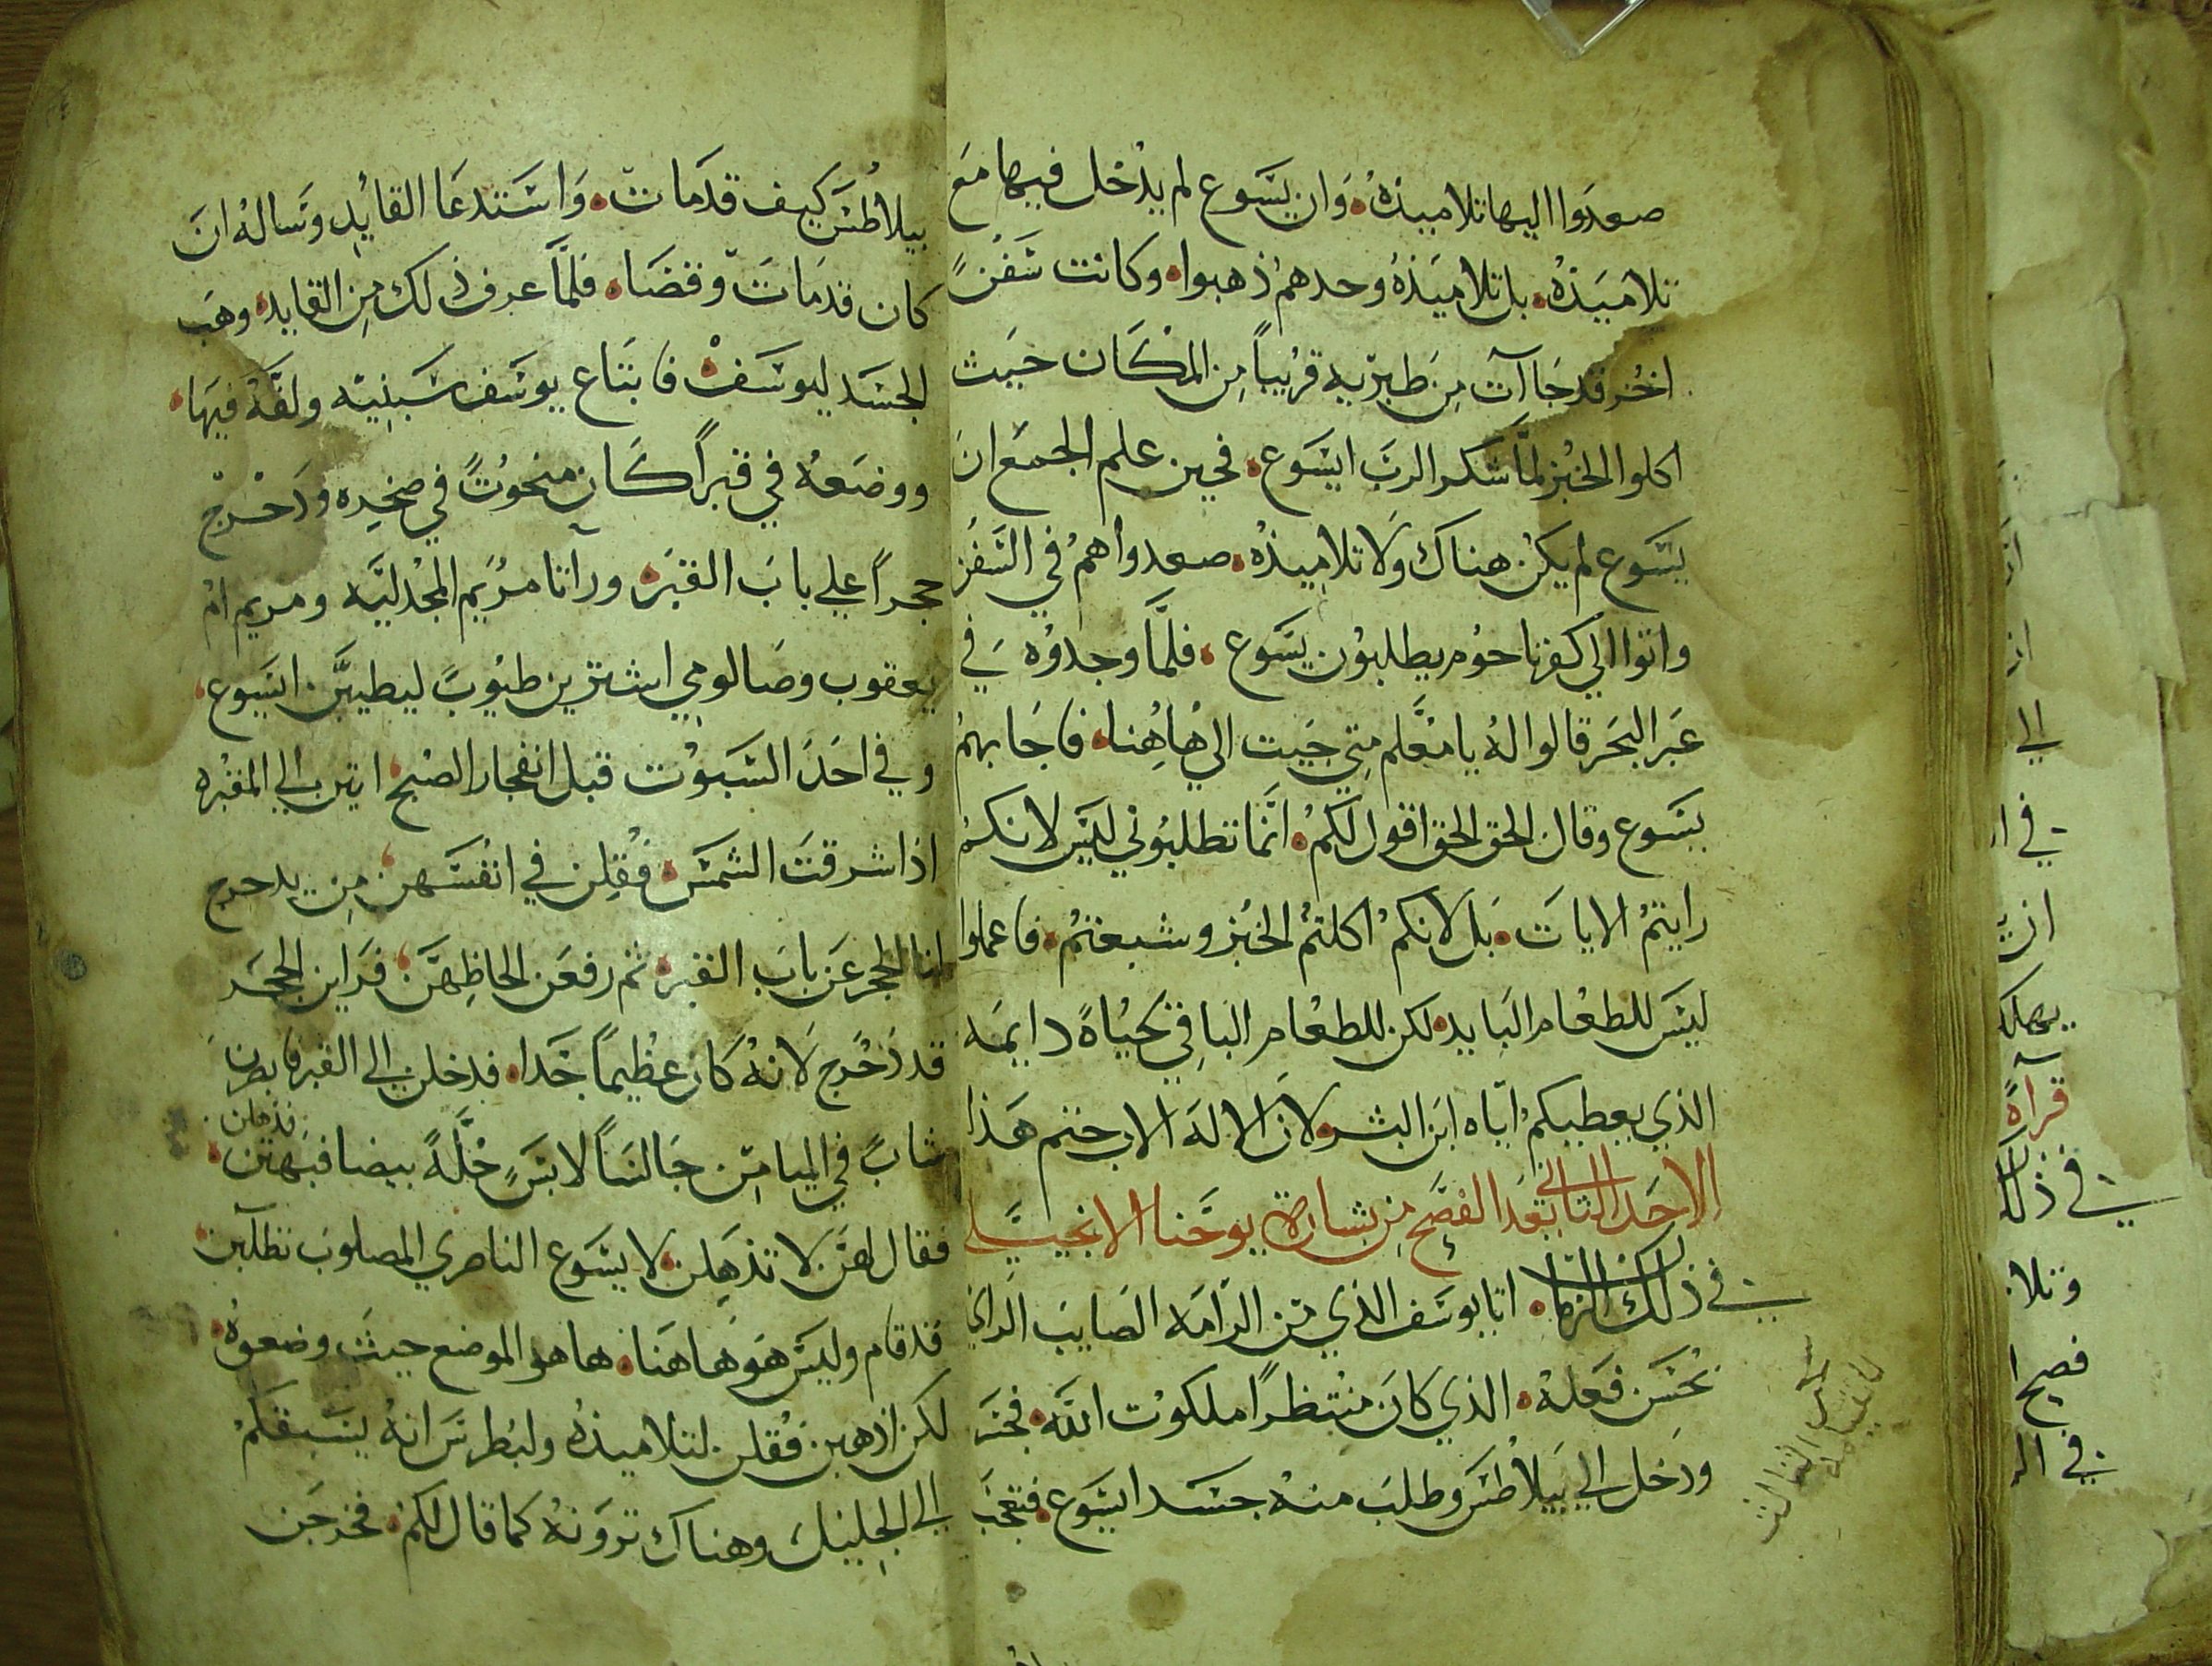 صعدوا اليها تلاميذهُ. وَان يسَوع لم يدْخل فيها مَع
تلاميَذهْ. بل تلاميَذهُ وحدهمْ ذهبوا. وكانت سَفنً
اخُر قد جَاآت مِن طبرَيه قرُيباً مِن المكَان حيَث
اكلوا الخبُز لمّا شكر الربَ ايسَوع. فحين علم الجمَع انَ
يسَوع لم يكنْ هناك وَلا تلاميذهْ. صعدواْ همْ في السَفُن
واتوا الي كفرناحوُم يطلبوُن يسَوع. فلمَّا وجدوْه في
عَبر البحَر قالوا لهُ يا مُعَلم متي جَيت الي هاهُنا. فاجَابهمُ
يسَوع وقال الحق الحق اقول لكمُ. انمَّا تطلبوُني ليَس لانكمْ
رايتمُ الايات. بَل لانكمُ اكلتمُ الخبُز وشبعتمُ. فاعملوا
ليسَ للطعَام البَايد. لكن للطعَام البَاقِي بحَيُاةً دايمَه
الذي يعطيكمُ ايّاه ابَن البشر. لان الالهَ الاب ختم هَذا
الاحَد الثاني بعَد الفصَح مِن بشارة يوحَنا الانجيلي
في ذلك الزمان. اتا يوسَف الذي مِن الرامَه الصَايبَ الراي
بحُسَن فعَلهْ. الذي كانَ منُتظرًا ملكوُت اللَّه. فجسَر
ودَخل الي بَيلاطسَ وطلبَ منهْ جسَد ايسَوع. فتعجَبَ
بيلاطسَ كيف قدمَات. وَاستدعَا القايد وسَالهُ انَ
كان قدمَات وقضَا. فلمَّا عرف ذلك مِن القايد. وهَب
الجسَد ليوسَفْ. فابتَاع يوسَف سَبنِيّه ولفّهُ فيهَا.
ووضَعهُ في قبراً كَان منحوُتً في صخِره ودَحْرج
حجراً علي بابَ القبَر. وراتا مرُيَم المجْدليَّه ومريم امُ
يعقوب وصَالومي اشترين طيُوبً ليطيبَّن ايسَوع.
وفي احَدَ السَبوْت قبل انفجار الصْبح. اتين الي المقبْره
اذا شرقتَ الشمسَ. فقُلِن في انفسَهن. مِن يدحرج
لنا الحجر عَن بابَ القبر. ثم رفعَن الحاظِهنَّ. فرَاين الحجَر
قد دُحْرج لَانهُ كَان عظيماً جَدا. فدخلن الي القبر فابصرن
فذهلن
شابً في الميامِن. جَالسَاً لابسٍَ حُلَّةً بيضا فبَهتن.
فقال لهنَ لا تذهَلن. لا يسَوع الناصري المصلوبَ تطلبن.
قد قام وليَس هَو هَاهنَا. ها هو الموضع حيثَ وضعوهُ.
لكن اذهبن. فقُلن لتلاميذهُ ولبُطرسَ انهُ يسَبقكمْ
الي الجلَيل وهناك تروَنهُ كما قال لكمْ. فخرجَن